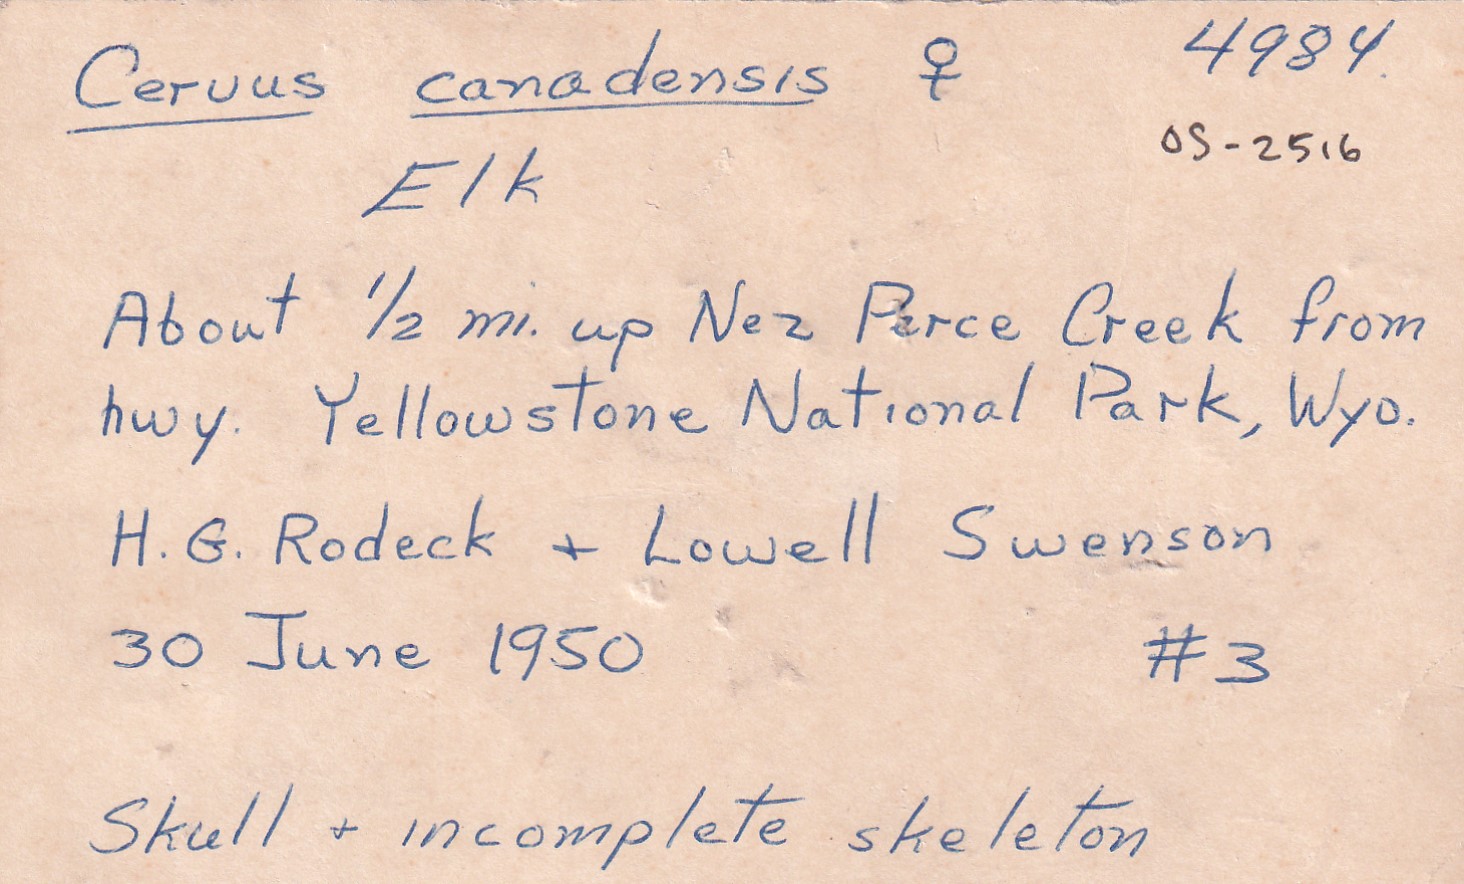 Cervus canadensis ♀ 4984.
OS-2516
Elk
About 1/2 mi. up Nez Perce Creek from
hwy. Yellowstone National Park, Wyo.
H. G. Rodeck + Lowell Swenson
30 June 1950 #3
Skull + incomplete skeleton